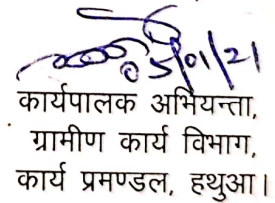 05/01/21
कार्यपालक अभियन्ता,
ग्रामीण कार्य विभाग,
कार्य प्रमण्डल, हथुआ।